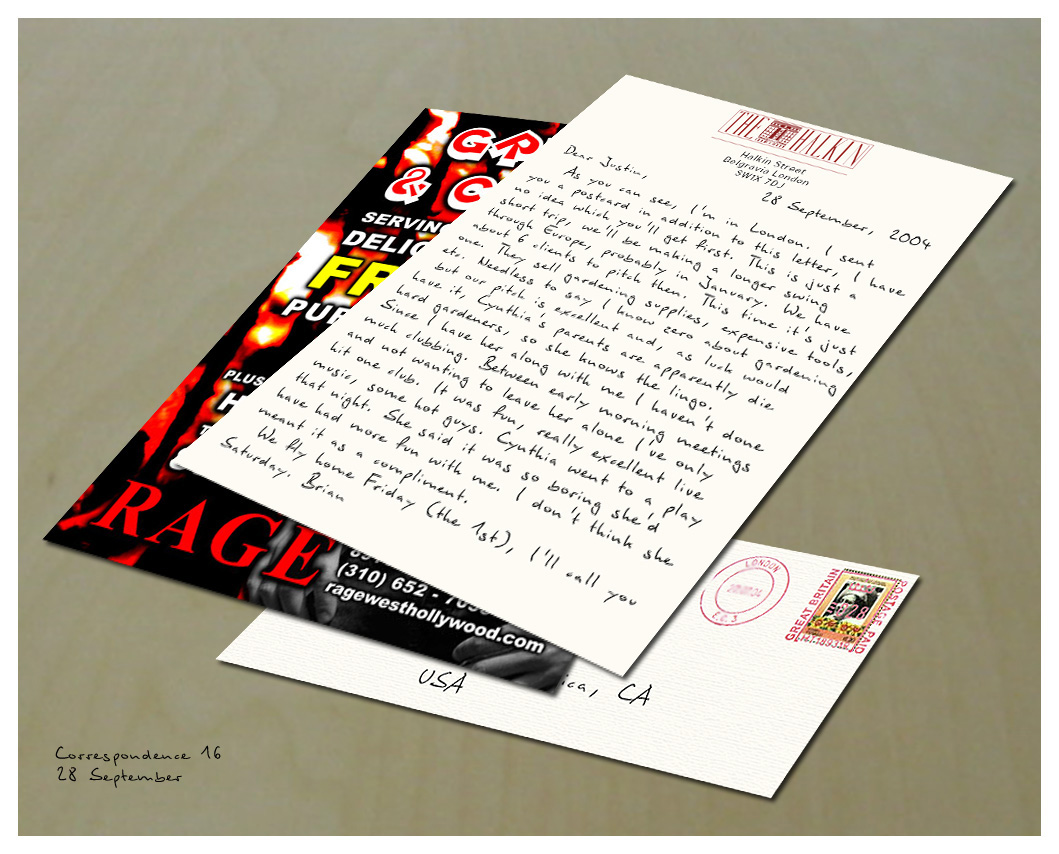 THE HALKIN
Halkin Street
Belgravia London
SW1X 7DJ
28 September, 2004
Dear Justin,
As you can see, I'm in London. I sent
you a postcard in addition to this letter, I have
no idea which you'll get first. This is just a
short trip, we'll be making a longer swing
through Europe, probably in January. We have
about 6 clients to pitch then. This time it's just
one. They sell gardening supplies, expensive tools,
etc. Needless to say I know zero about gardening
but our pitch is excellent and, as luck would
have it, Cynthia's parents are apparently die
hard gardeners, so she knows the lingo.
Since I have her along with me I haven't done
much clubbing. Between early morning meetings
and not wanting to leave her alone I've only
hit one club. It was fun, really excellent live
music, some hot guys. Cynthia went to a play
that night. She said it was so boring she'd
have had more fun with me. I don't think she
meant it as a compliment.
We fly home Friday (the 1st), I'll call you
Saturday. Brian
GR
& C
SERVING
DELIC
FR
PUB
PLUS
H
RAGE
(310) 652 - 705
ragewesthollywood.com
LONDON
E.C.3
GREAT BRITAIN
POSTAGE PAID
ica, CA
USA
Correspondence 16
28 September